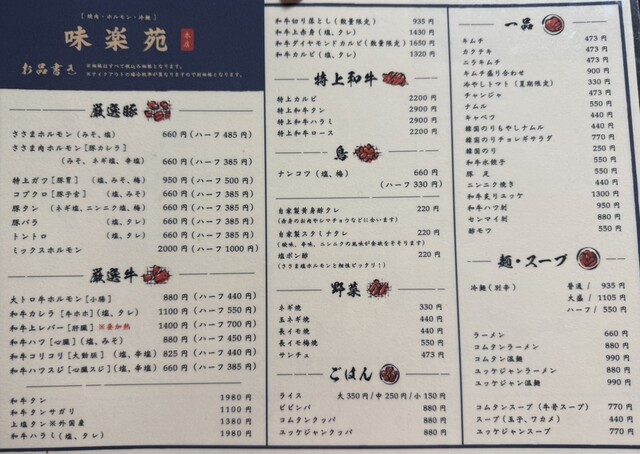 [ 焼肉・ホルモン・冷麺 ]
味楽苑 本店
お品書き
※価格はすべて税込み価格となります。
厳選豚
ささまホルモン(みそ、塩) 660 円(ハーフ 485 円)
ささま肉ホルモン[豚カシラ]
(みそ、ネギ塩、辛塩) 660 円(ハーフ 385 円)
特上ガツ[豚胃] (塩、みそ、梅) 950 円(ハーフ 500 円)
コブクロ[豚子宮] (塩、みそ) 660 円(ハーフ 385 円)
豚タン (ネギ塩、ニンニク塩、塩) 660 円(ハーフ 385 円)
豚バラ (塩、タレ) 660 円(ハーフ 385 円)
トントロ (塩、タレ) 660 円(ハーフ 385 円)
ミックスホルモン 2000 円(ハーフ 1000 円)
厳選牛
大トロ牛ホルモン[小腸] 880 円(ハーフ 440 円)
和牛カシラ [牛ホホ](塩、タレ) 1100 円(ハーフ 550 円)
和牛上レバー[肝臓]※要加熱 1400 円(ハーフ 700 円)
和牛ハツ[心臓](塩、みそ) 880 円(ハーフ 450 円)
和牛コリコリ[大動脈] (塩、辛塩) 825 円(ハーフ 440 円)
和牛ハツスジ[心臓スジ](塩、辛塩) 660 円(ハーフ 385 円)
和牛タン 1980 円
和牛タンサガリ 1100 円
上塩タン※外国産 1380 円
和牛ハラミ(塩、タレ) 1980 円
和牛切り落とし(数量限定) 935 円
和牛上赤身(塩、タレ) 1430 円
和牛ダイヤモンドカルビ(数量限定) 1650 円
和牛カルビ(塩、タレ) 1320 円
特上和牛
特上カルビ 2200 円
特上和牛タン 2900 円
特上和牛ハラミ 2900 円
特上和牛ロース 2200 円
鳥
ナンコツ(塩、梅) 660 円
(ハーフ 330 円)
自家製費身酢タレ 220 円
(赤身のお肉やシマチョウなどに合います)
自家製スタミナタレ 220 円
(酸味、辛味、ニンニクの風味が食欲をそそります)
塩ポン酢 220 円
(ささま塩ホルモンと相性ピッタリ!)
野菜
ネギ焼 330 円
玉ネギ焼 440 円
長イモ焼 440 円
長イモ梅焼 550 円
サンチュ 473 円
ごはん
ライス 大 350 円/中 250 円/小 150 円
ビビンバ 880 円
コムタンクッパ 880 円
ユッケジャンクッパ 880 円
一品
キムチ 473 円
カクテキ 473 円
ニラキムチ 473 円
キムチ盛り合わせ 900 円
冷やしトマト(夏期限定) 330 円
チャンジャ 473 円
ナムル 550 円
キャベツ 440 円
韓国のりもやしナムル 440 円
韓国のりチョレギサラダ 770 円
韓国のり 250 円
和牛水餃子 550 円
豚 足 550 円
ニンニク焼き 440 円
和牛炙りユッケ 1300 円
和牛ハツ刺 950 円
センマイ刺 880 円
酢モツ 550 円
麺・スープ
冷麺(別辛) 普通 / 935 円
大盛 / 1105 円
ハーフ / 550 円
ラーメン 660 円
コムタンラーメン 880 円
コムタン温麺 990 円
ユッケジャンラーメン 880 円
ユッケジャン温麺 990 円
コムタンスープ(牛骨スープ) 770 円
スープ(玉子、ワカメ) 440 円
ユッケジャンスープ 770 円